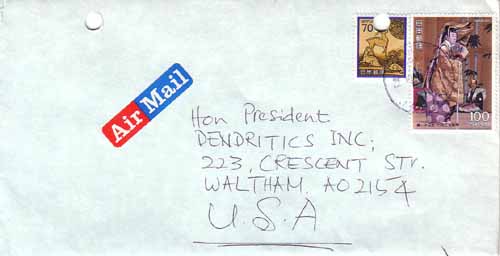 70
日本郵便
日本郵便
100
Air Mail
Hon President
DENDRITICS INC;
223, CRESCENT Str.
WALTHAM. AO2154
U.S.A